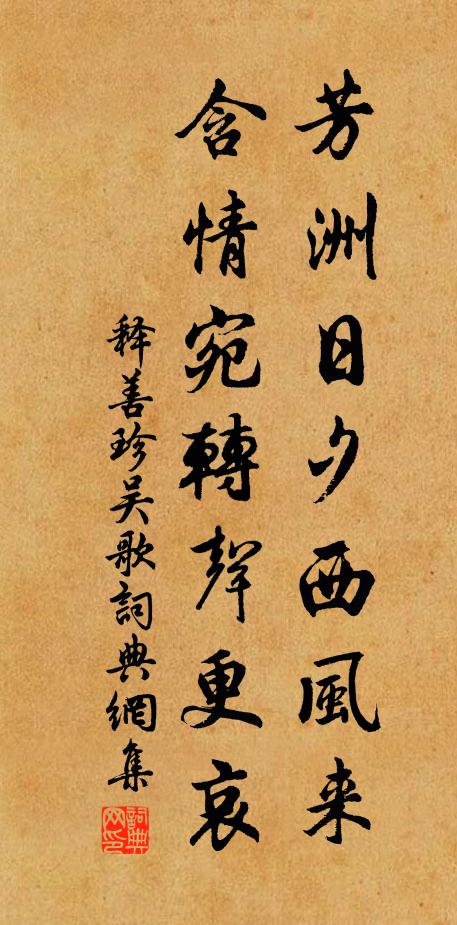 芳洲日夕西風来
含情宛轉聲更哀
释善珍吴歌詞典網集
詞典网印